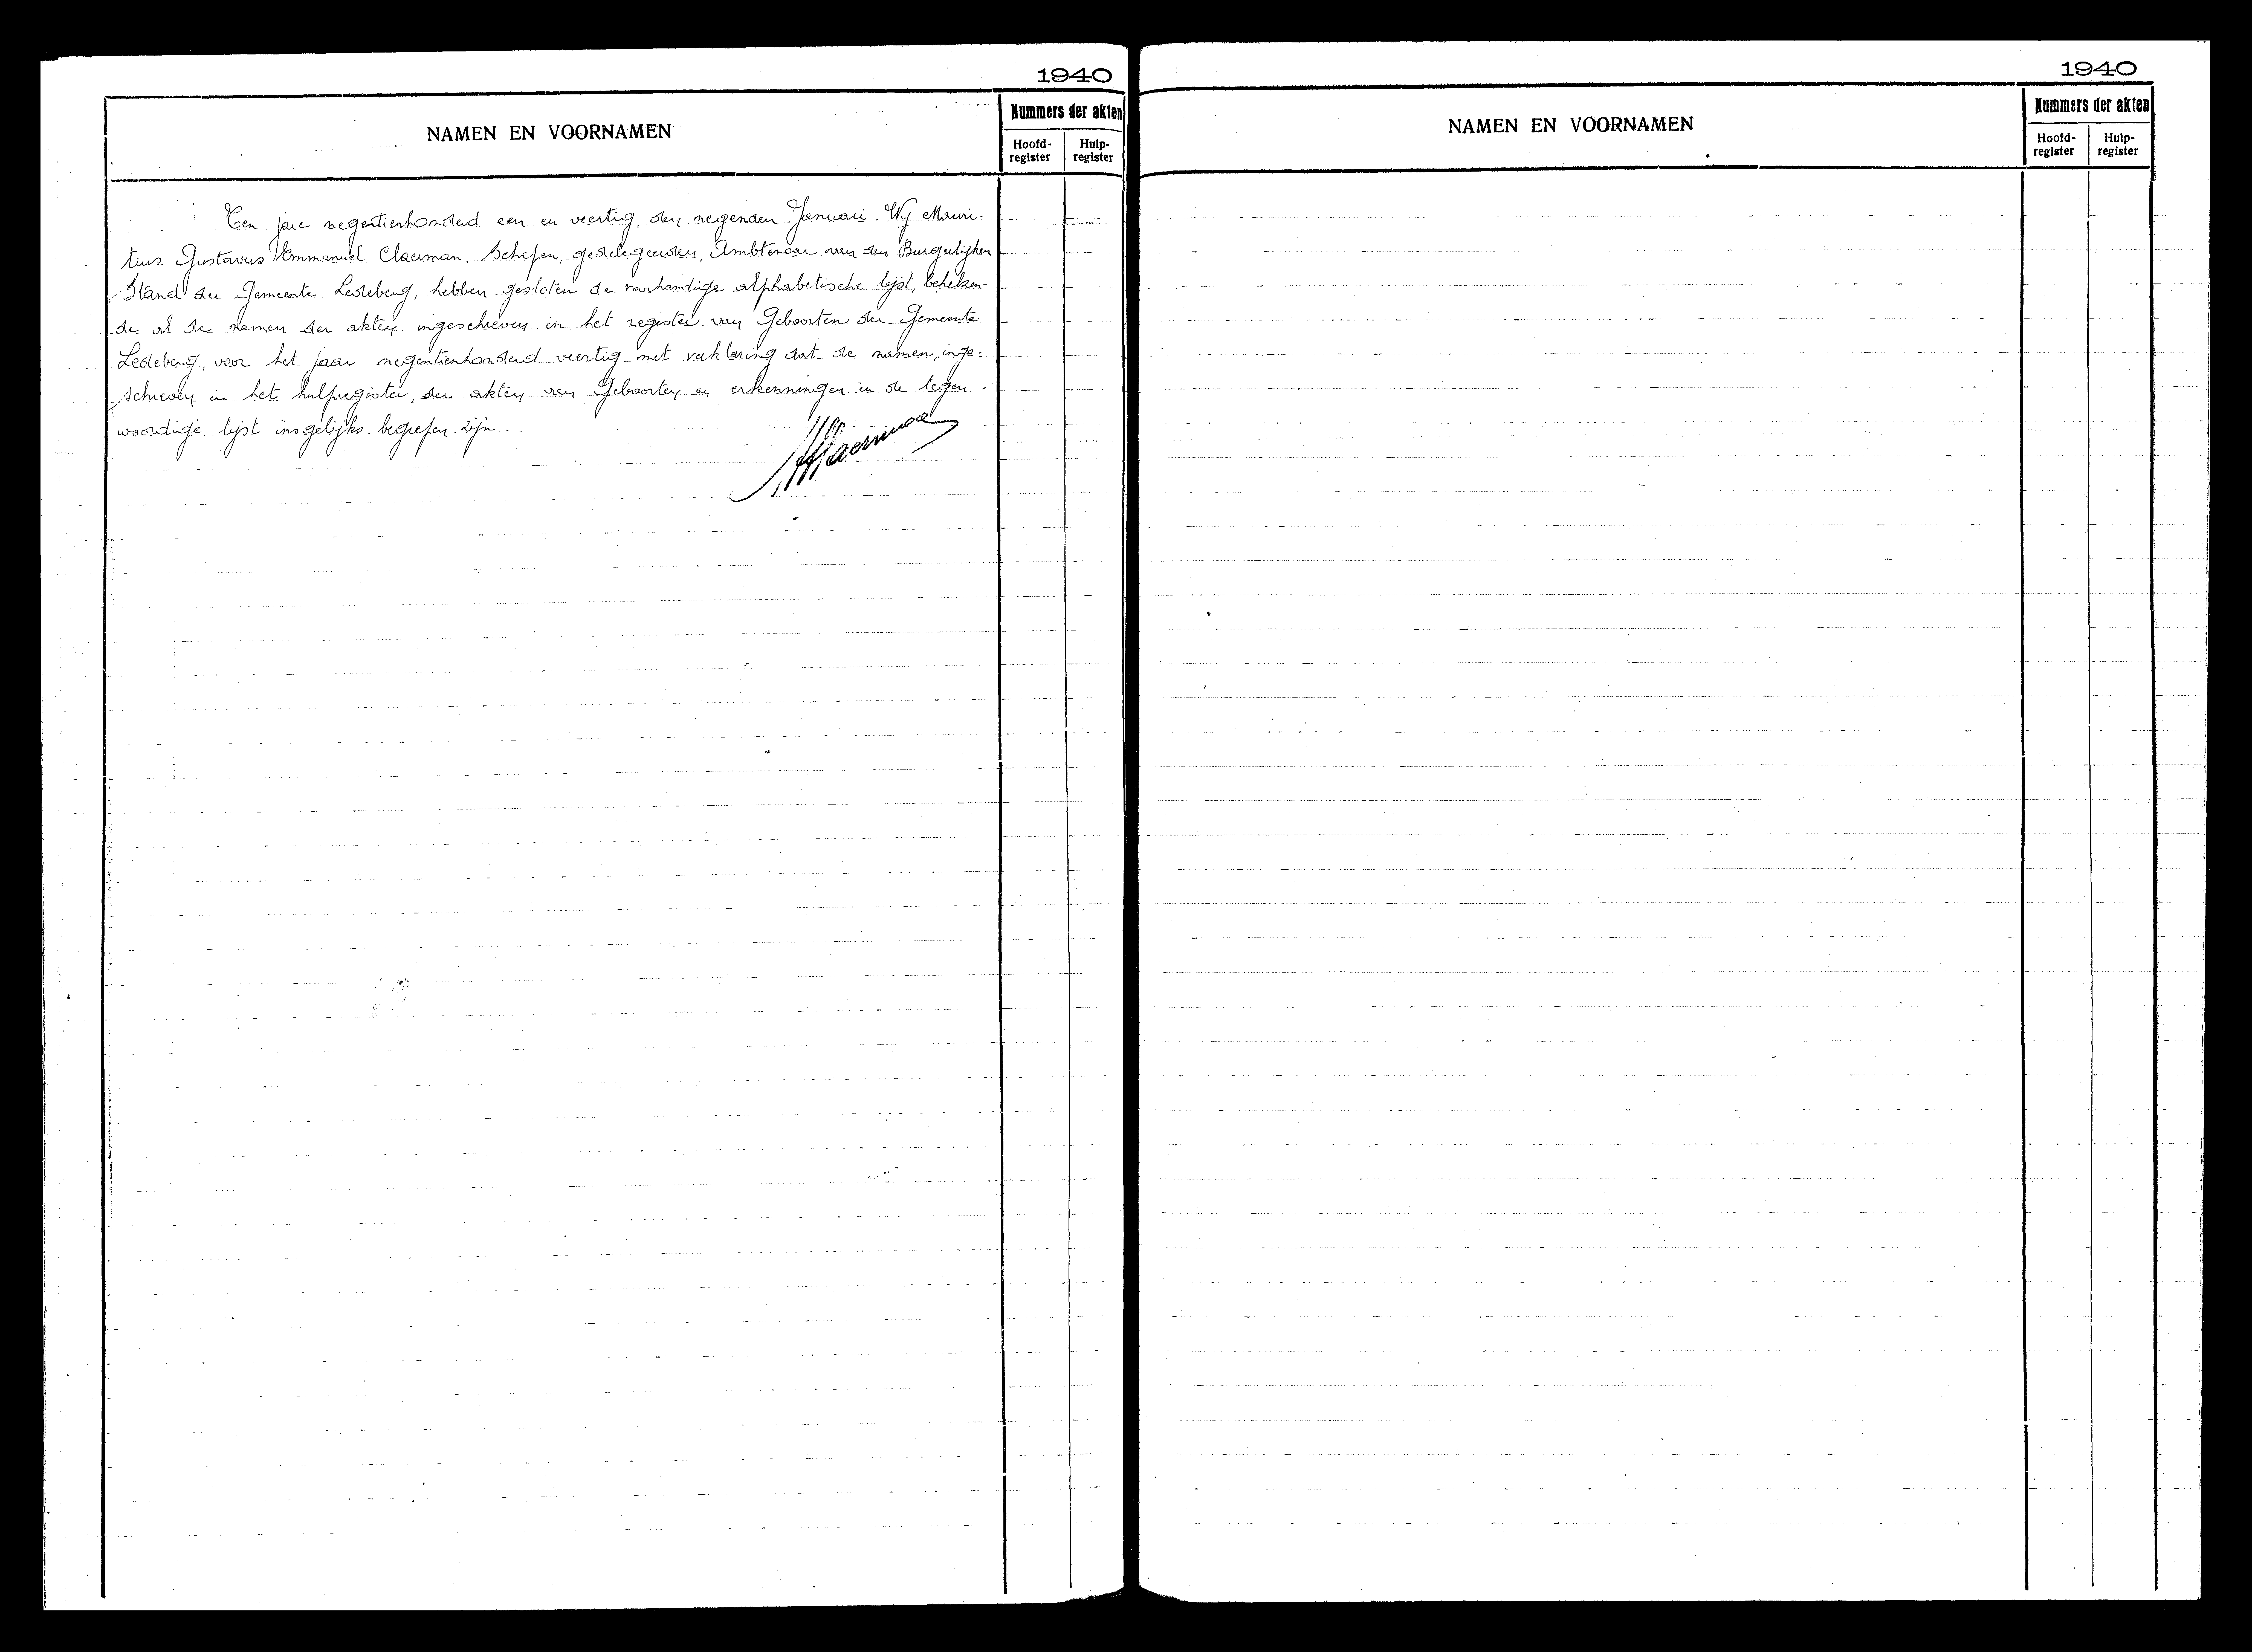 1940
NAMEN EN VOORNAMEN
Nummers der akten
Hoofd-
register
Hulp-
register
Ten jare negentienhonderd een en veertig, den negenden Januari. Wij Mauri-
tius Gustavus Emmanuel Claerman. Schepen, gedelegeerden, Ambtenaar van den Burgerlijken
Stand der Gemeente Ledeberg, hebben gesloten de voorhandige alphabetische lijst, beteken-
de al de namen der akten ingeschreven in het register van Geboorten der Gemeente
Ledeberg, voor het jaar negentienhonderd veertig met verklaring dat de namen, inge-
schreven in het hulpregister, der akten van Geboorten en erkenningen in de tegen-
woordige lijst insgelijks begrepen zijn.
1940
NAMEN EN VOORNAMEN
Nummers der akten
Hoofd-
register
Hulp-
register